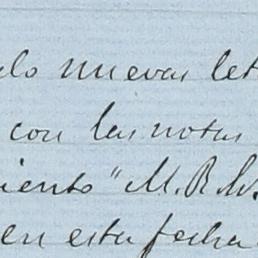 ulo nuevas let
con las notas
iento "M. R. W.
en esta fecha